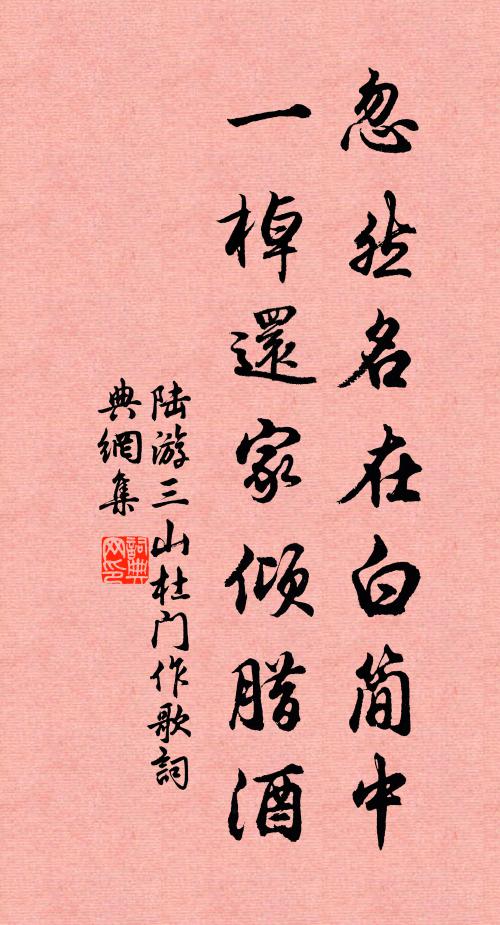 忽然名在白简中
一棹還家倾腊酒
陆游三山杜门作歌詞
典網集
詞典网印